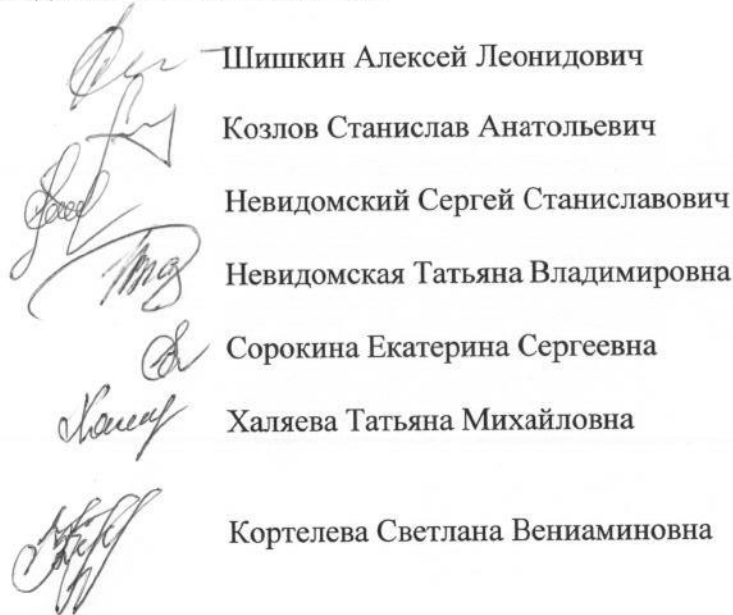 Шишкин Алексей Леонидович
Козлов Станислав Анатольевич
Невидомский Сергей Станиславович
Невидомская Татьяна Владимировна
Сорокина Екатерина Сергеевна
Халяева Татьяна Михайловна
Кортелева Светлана Вениаминовна